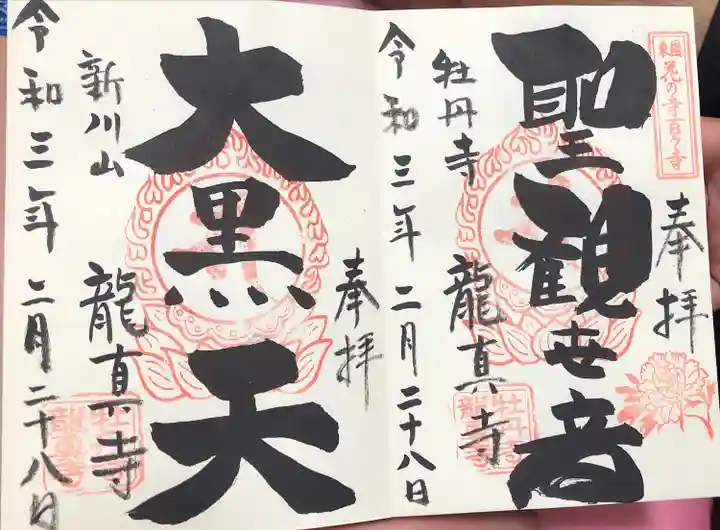 東国
花の寺百ヶ寺
奉拝
聖観世音
牡丹寺
龍真寺
牡丹
龍真寺
令和三年二月二十八日
奉拝
大黒天
新川山
龍真寺
牡丹
龍真寺
令和三年二月二十八日